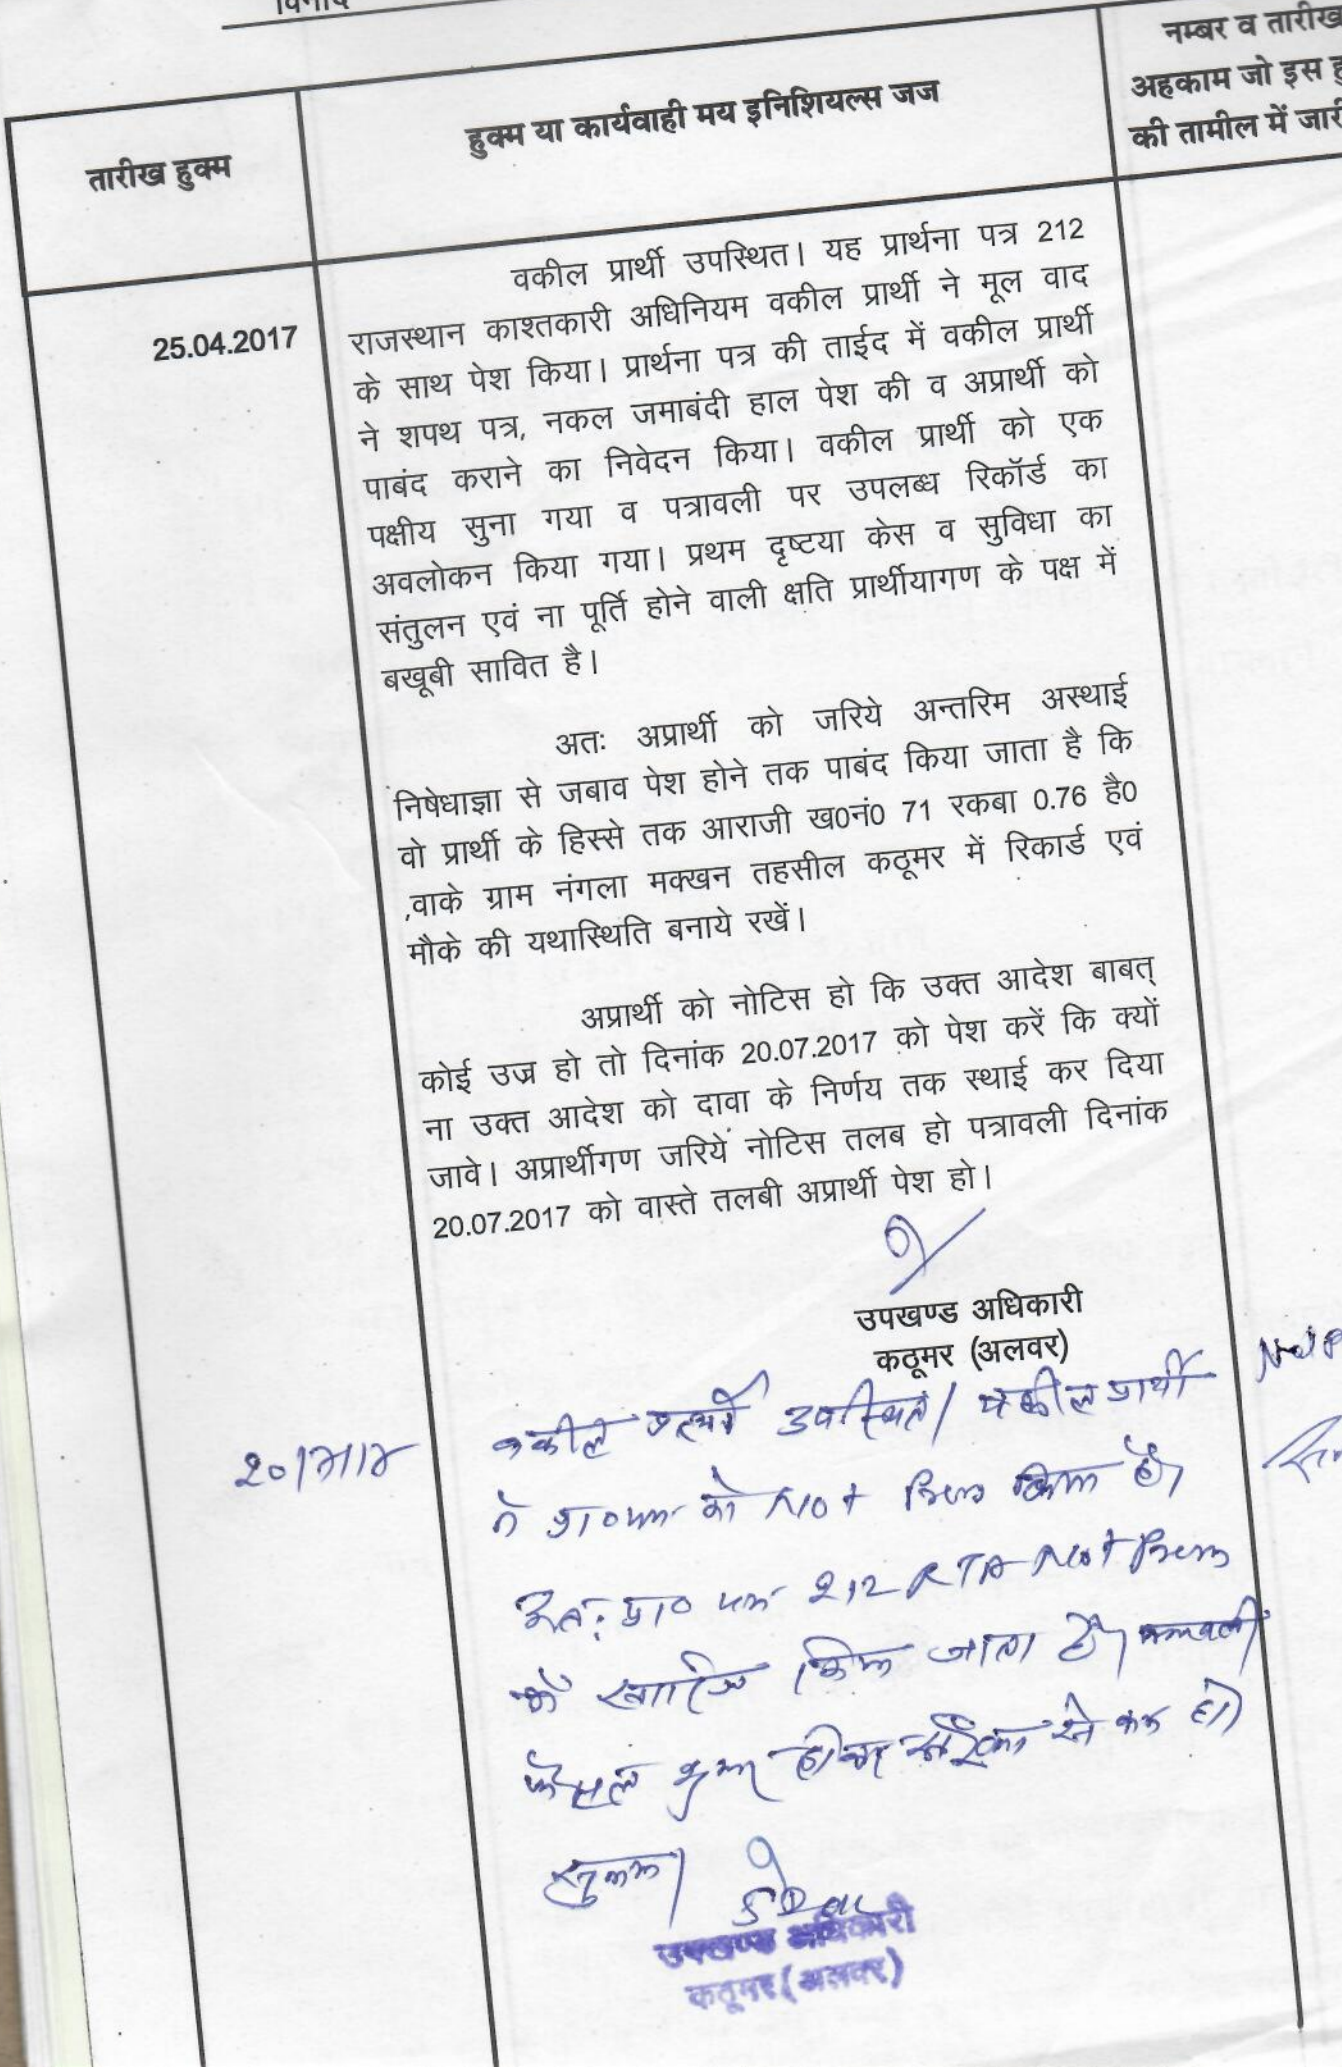 विनोद
तारीख हुक्म
हुक्म या कार्यवाही मय इनिशियल्स जज
नम्बर व तारीख
अहकाम जो इस हु
की तामील में जारी
25.04.2017
वकील प्रार्थी उपस्थित। यह प्रार्थना पत्र 212
राजस्थान काश्तकारी अधिनियम वकील प्रार्थी ने मूल वाद
के साथ पेश किया। प्रार्थना पत्र की ताईद में वकील प्रार्थी
ने शपथ पत्र, नकल जमाबंदी हाल पेश की व अप्रार्थी को
पाबंद कराने का निवेदन किया। वकील प्रार्थी को एक
पक्षीय सुना गया व पत्रावली पर उपलब्ध रिकॉर्ड का
अवलोकन किया गया। प्रथम दृष्टया केस व सुविधा का
संतुलन एवं ना पूर्ति होने वाली क्षति प्रार्थीयागण के पक्ष में
बखूबी सावित है।
अतः अप्रार्थी को जरिये अन्तरिम अस्थाई
निषेधाज्ञा से जबाव पेश होने तक पाबंद किया जाता है कि
वो प्रार्थी के हिस्से तक आराजी ख0नं0 71 रकबा 0.76 है0
,वाके ग्राम नंगला मक्खन तहसील कठूमर में रिकार्ड एवं
मौके की यथास्थिति बनाये रखें।
अप्रार्थी को नोटिस हो कि उक्त आदेश बाबत्
कोई उज्र हो तो दिनांक 20.07.2017 को पेश करें कि क्यों
ना उक्त आदेश को दावा के निर्णय तक स्थाई कर दिया
जावे। अप्रार्थीगण जरियें नोटिस तलब हो पत्रावली दिनांक
20.07.2017 को वास्ते तलबी अप्रार्थी पेश हो।
उपखण्ड अधिकारी
कठूमर (अलवर)
वकील उपस्थित। वकील प्रार्थी
ने प्रा0 पत्र को Not Press किया है।
अतः प्रा0 पत्र 212 RTA Not Press
में खारिज किया जाता है। पत्रावली
फैसल शुमार होकर नम्बर से कम हो।
उपखण्ड अधिकारी
कठूमर (अलवर)